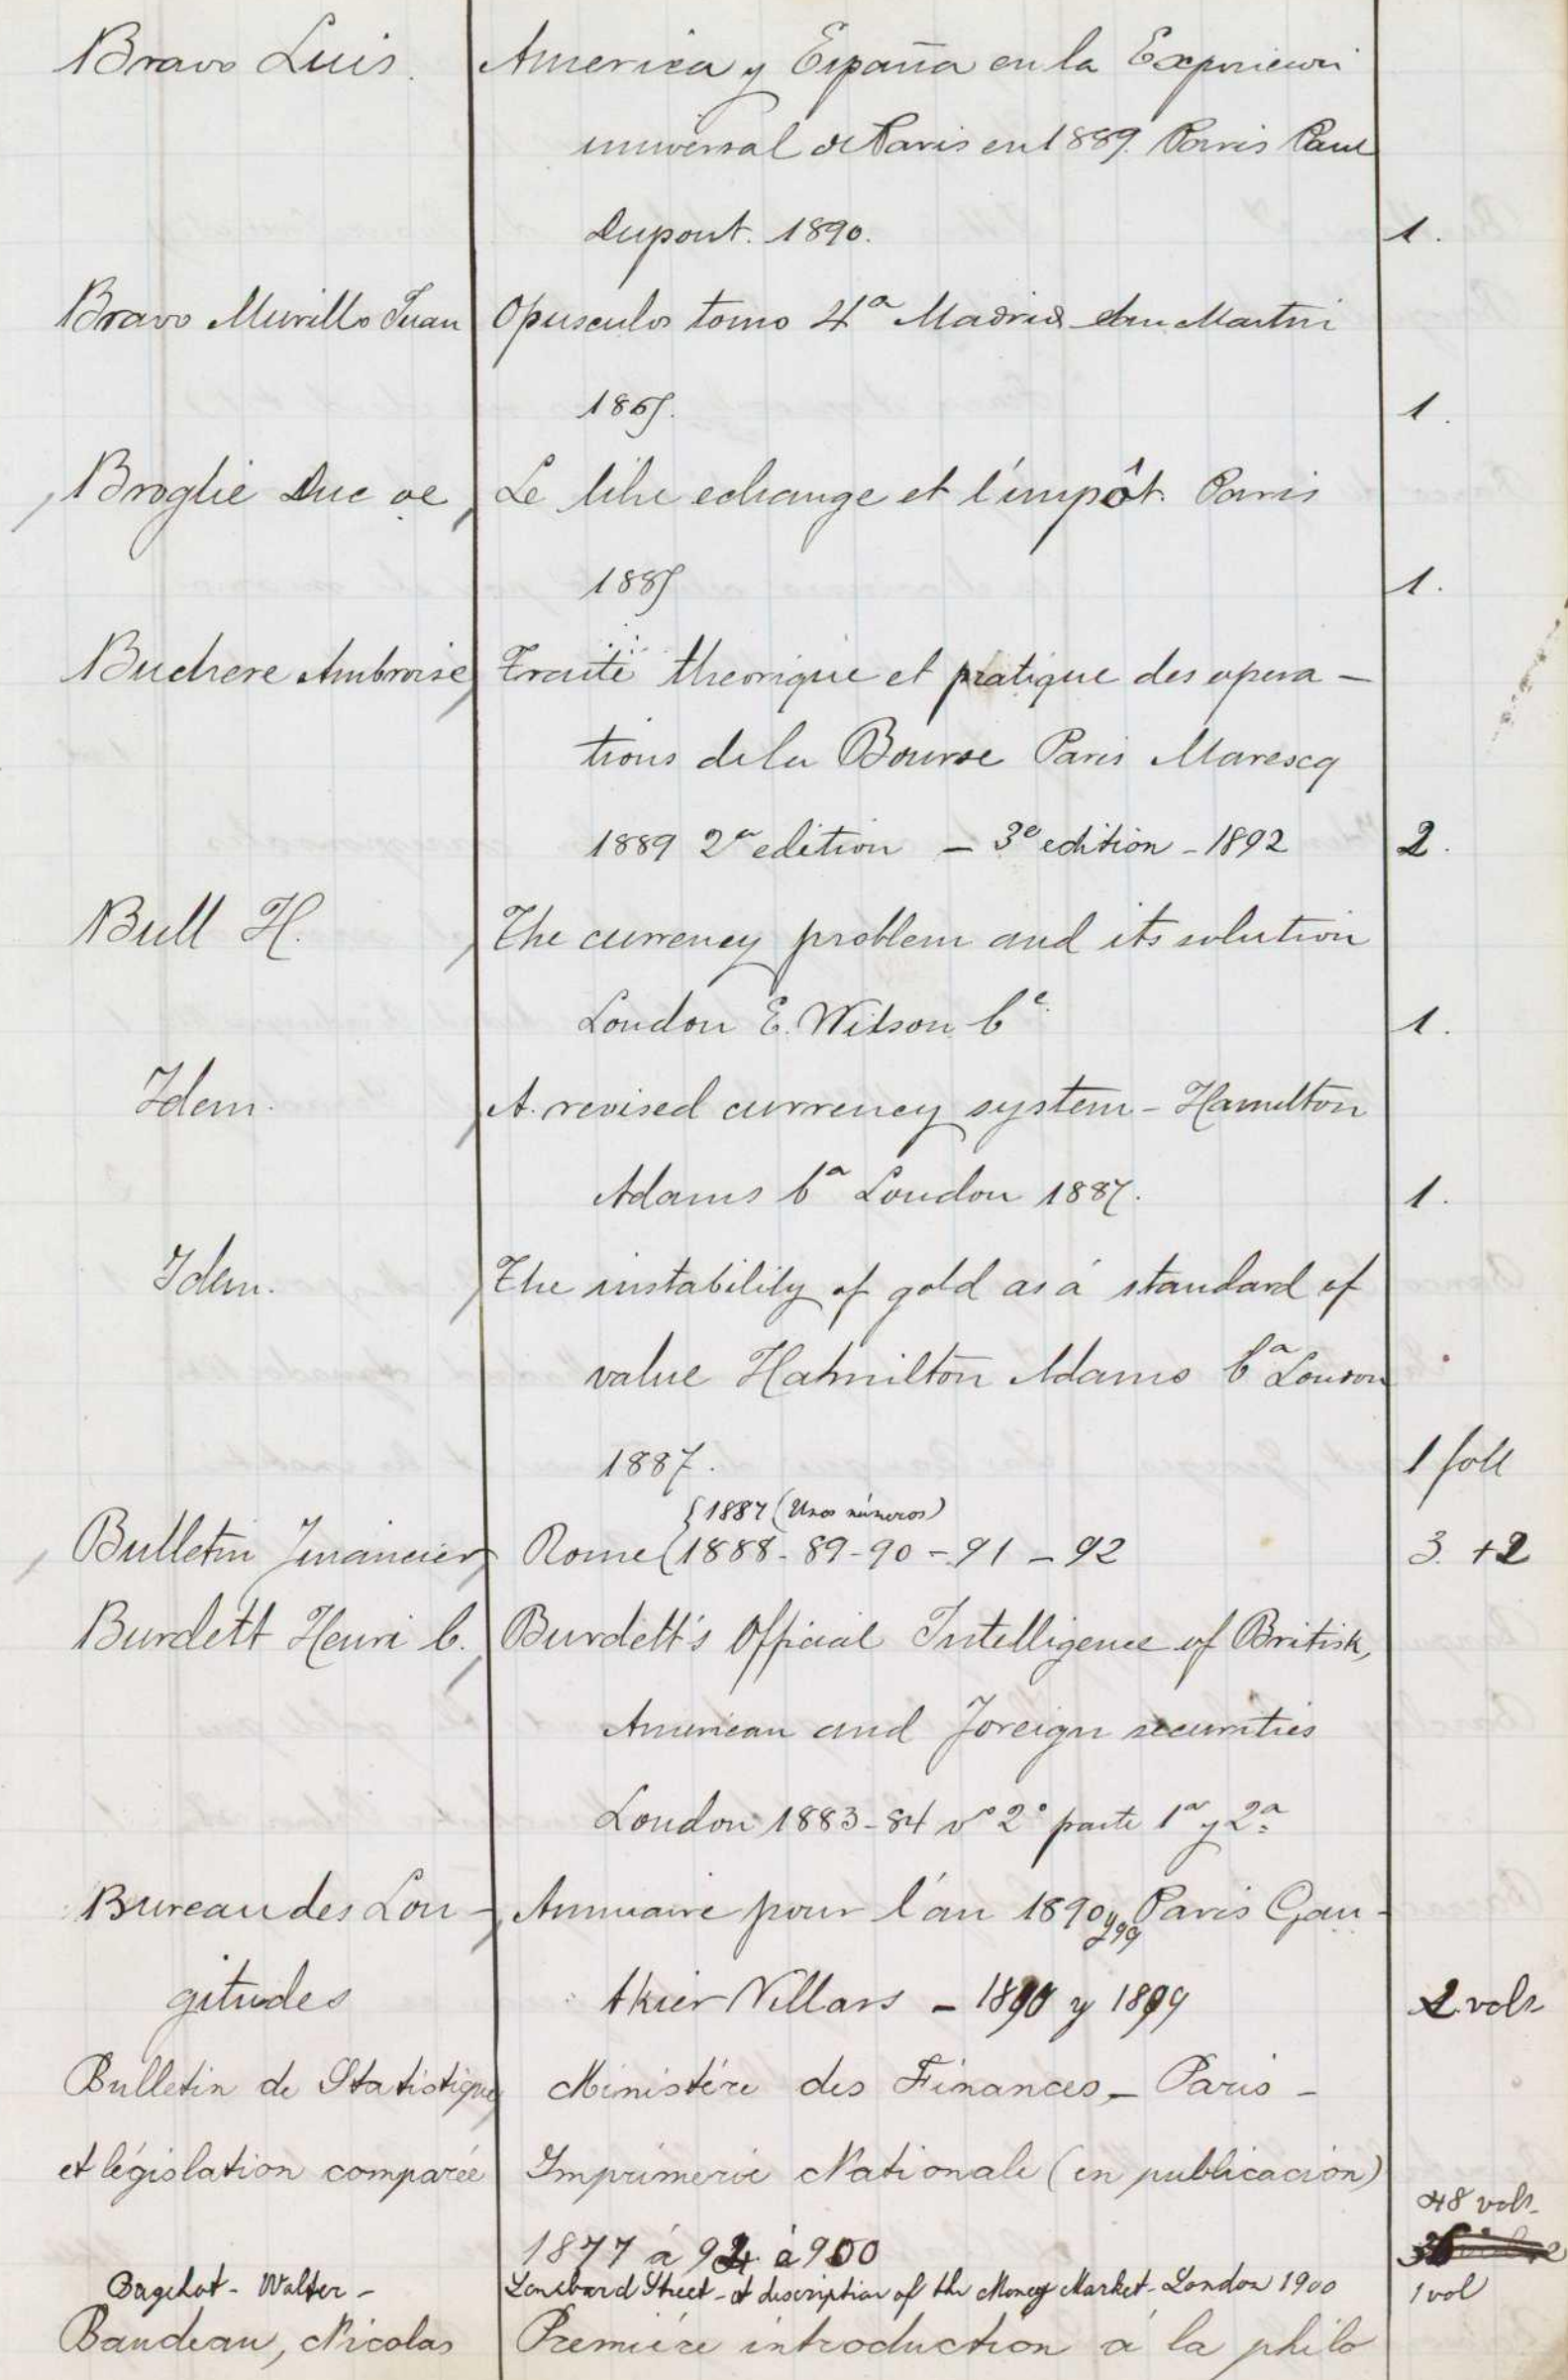 Bravo Luis. America y España en la Exposicion
universal de Paris en 1889. Paris Paul
Dupont. 1890. 1.
Bravo Murillo Juan Opusculos tomo 4ª Madrid San Martin
1865. 1.
Broglie Duc de, Le libre echange et l'impôt. Paris
1885 1.
Buchere Ambroise, Traité theorique et pratique des opera-
tions de la Bourse Paris Marescq
1889 2ª edition - 3e edition - 1892 2.
Bull H. The currency problem and its solution
London E. Wilson Ce. 1.
Idem. A. revised currency system - Hamilton
Adams Cª London 1887. 1.
Idem. The instability of gold as á standard of
value Hamilton Adams Cª London
1887. 1 foll
{1887 (Unos números)
Bulletin Financier, Rome (1888-89-90-91-92 3. +2
Burdett Henri C. Burdett's Official Intelligence of British,
American and Foreign securities
London 1883-84 vº 2º parte 1ª y 2ª
Bureau des Lon- Annuaire pour l'an 1890 y 99 Paris Gau-
gitudes thier Villars - 1890 y 1899 2 vols
Bulletin de Statistique, Ministére des Finances - Paris -
et législation comparée Imprimerie Nationale (en publicación)
48 vols-
1877 á 94 á 900
Bagehot - Walter - Lombard Street - A description of the Money Market - London 1900 1 vol
Baudeau, Nicolas Premiére introduction á la philo